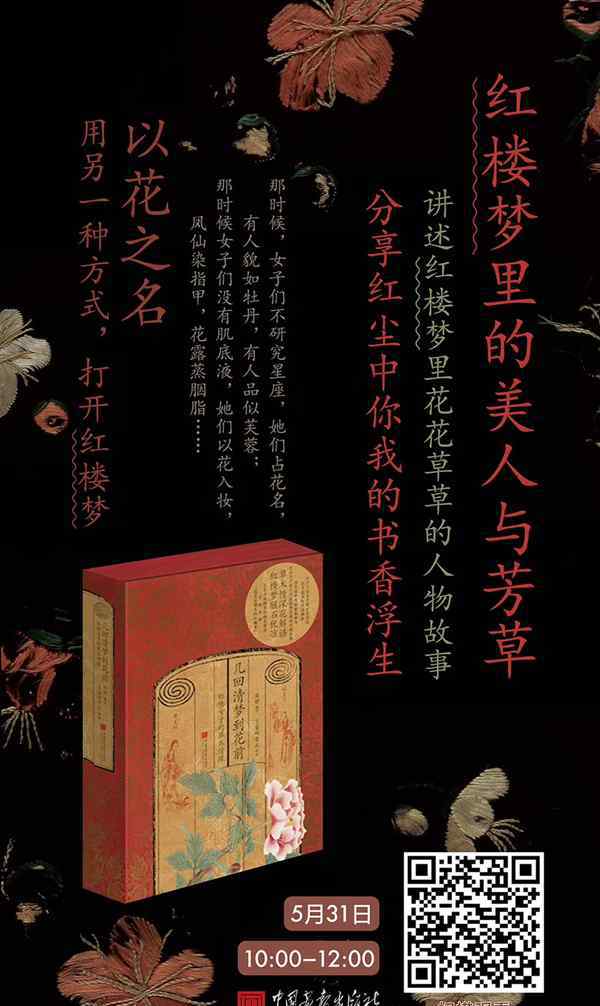 红楼梦里的美人与芳草
讲述红楼梦里花花草草的人物故事
分享红尘中你我的书香浮生
那时候，女子们不研究星座，她们占花名，
有人貌如牡丹，有人品似芙蓉；
那时候女子们没有肌底液，她们以花入妆，
凤仙染指甲，花露蒸胭脂……
以花之名
用另一种方式，打开红楼梦
草木情深花解语
红楼梦醒石犹凉
几回清梦到花前
几回清梦到花前
5月31日
10:00–12:00